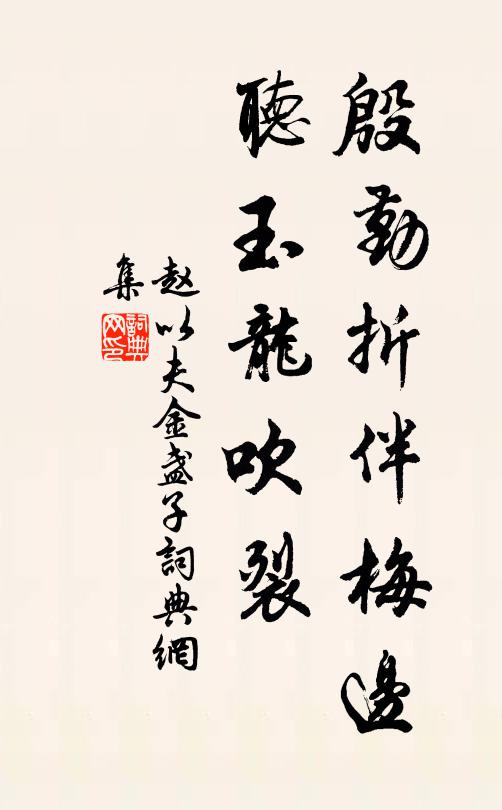 殷勤折伴梅邊
聽玉龍吹裂
赵以夫金盞子詞典網
集
詞典網印